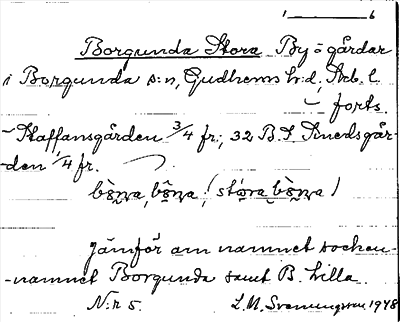 1 6
Borgunda Stora By=gårdar
i Borgunda s:n, Gudhems h:d, Skb. l.
forts.
Staffansgården 3/4 fr., 32 B.S. Snedsgår-
den 1/4 fr.
Jämför om namnet socken-
-namnet Borgunda samt B. Lilla.
N:r 5. 1948